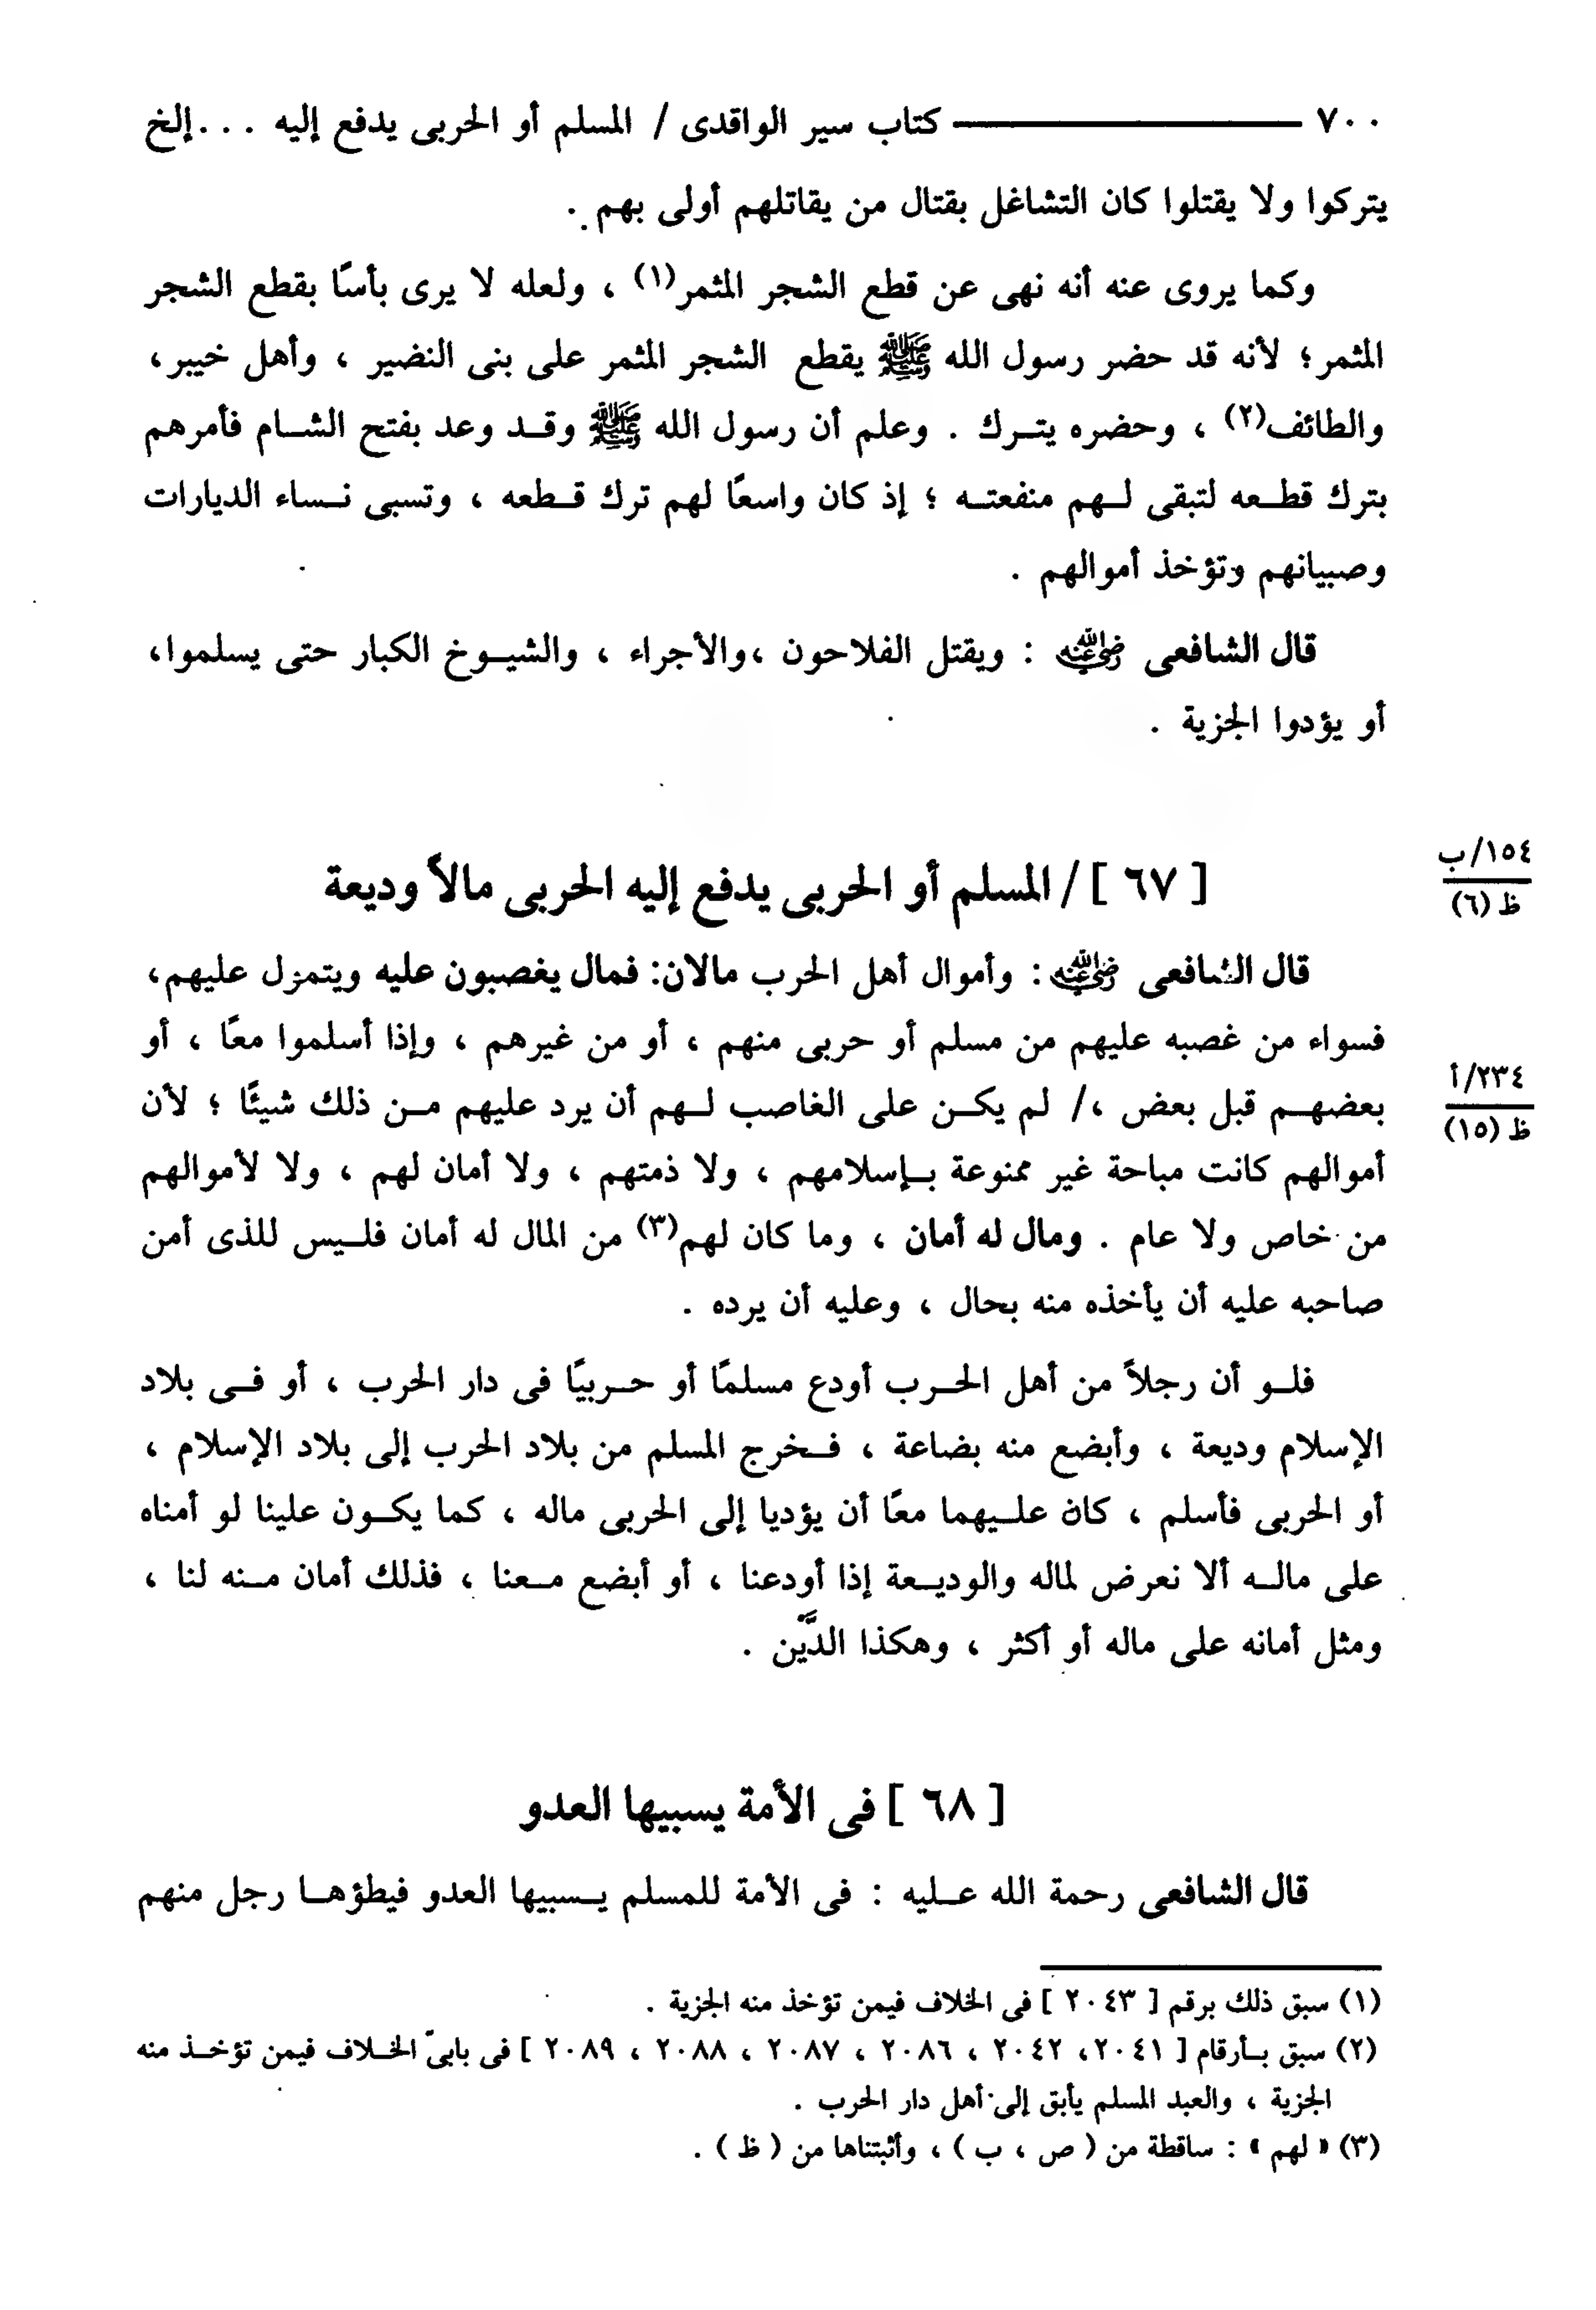 ٧٠٠ ــــــــــــ كتاب سير الواقدى / المسلم أو الحربى يدفع إليه . . . إلخ
يتركوا ولا يقتلوا كان التشاغل بقتال من يقاتلهم أولى بهم .
وكما يروى عنه أنه نهى عن قطع الشجر المثمر(١) ، ولعله لا يرى بأسًا بقطع الشجر
المثمر؛ لأنه قد حضر رسول الله ﷺ يقطع الشجر المثمر على بنى النضير ، وأهل خيبر،
والطائف(٢) ، وحضره يترك . وعلم أن رسول الله ﷺ وقد وعد بفتح الشام فأمرهم
بترك قطعه لتبقى لهم منفعته ؛ إذ كان واسعًا لهم ترك قطعه ، وتسبى نساء الديارات
وصبيانهم وتؤخذ أموالهم .
قال الشافعى رضي الله عنه : ويقتل الفلاحون ،والأجراء ، والشيوخ الكبار حتى يسلموا،
أو يؤدوا الجزية .
١٥٤/ب
ظ (٦)
[ ٦٧ ] / المسلم أو الحربى يدفع إليه الحربى مالاً وديعة
قال الشافعى رضي الله عنه : وأموال أهل الحرب مالان: فمال يغصبون عليه ويتمول عليهم،
فسواء من غصبه عليهم من مسلم أو حربى منهم ، أو من غيرهم ، وإذا أسلموا معًا ، أو
٢٣٤/أ
ظ (١٥)
بعضهم قبل بعض ،/ لم يكن على الغاصب لهم أن يرد عليهم من ذلك شيئًا ؛ لأن
أموالهم كانت مباحة غير ممنوعة بإسلامهم ، ولا ذمتهم ، ولا أمان لهم ، ولا لأموالهم
من خاص ولا عام . ومال له أمان ، وما كان لهم(٣) من المال له أمان فليس للذى أمن
صاحبه عليه أن يأخذه منه بحال ، وعليه أن يرده .
فلو أن رجلاً من أهل الحرب أودع مسلمًا أو حربيًا فى دار الحرب ، أو فى بلاد
الإسلام وديعة ، وأبضع منه بضاعة ، فخرج المسلم من بلاد الحرب إلى بلاد الإسلام ،
أو الحربى فأسلم ، كان عليهما معًا أن يؤديا إلى الحربى ماله ، كما يكون علينا لو أمناه
على ماله ألا نعرض لماله والوديعة إذا أودعنا ، أو أبضع معنا ، فذلك أمان منه لنا ،
ومثل أمانه على ماله أو أكثر ، وهكذا الدَّيْن .
[ ٦٨ ] فى الأمة يسبيها العدو
قال الشافعى رحمة الله عليه : فى الأمة للمسلم يسبيها العدو فيطؤها رجل منهم
(١) سبق ذلك برقم [ ٢٠٤٣ ] فى الخلاف فيمن تؤخذ منه الجزية .
(٢) سبق بأرقام [ ٢٠٤١، ٢٠٤٢ ، ٢٠٨٦ ، ٢٠٨٧ ، ٢٠٨٨ ، ٢٠٨٩ ] فى بابىّ الخلاف فيمن تؤخذ منه
الجزية ، والعبد المسلم يأبق إلى أهل دار الحرب .
(٣) « لهم » : ساقطة من ( ص ، ب ) ، وأثبتناها من ( ظ ) .